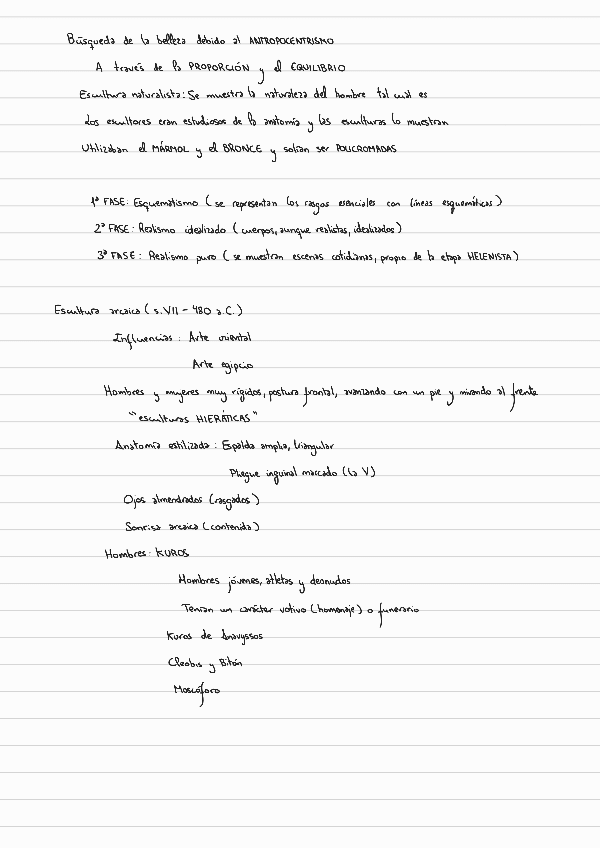 Búsqueda de la belleza debido al ANTROPOCENTRISMO
A través de la PROPORCIÓN y el EQUILIBRIO
Escultura naturalista: Se muestra la naturaleza del hombre tal cual es
Los escultores eran estudiosos de la anatomía y las esculturas lo muestran
Utilizaban el MÁRMOL y el BRONCE y solían ser POLICROMADAS
1ª FASE: Esquematismo (se representan los rasgos esenciales con líneas esquemáticas)
2ª FASE: Realismo idealizado (cuerpos, aunque realistas, idealizados)
3ª FASE: Realismo puro (se muestran escenas cotidianas, propio de la etapa HELENISTA)
Escultura arcaica (s.VII - 480 a.C.)
Influencias: Arte oriental
Arte egipcio
Hombres y mujeres muy rígidos, postura frontal, avanzando con un pie y mirando al frente
"esculturas HIERÁTICAS"
Anatomía estilizada: Espalda amplia, triangular
Pliegue inguinal marcado (la V)
Ojos almendrados (rasgados)
Sonrisa arcaica (contenida)
Hombres: KUROS
Hombres jóvenes, atletas y desnudos
Tenían un carácter votivo (homenaje) o funerario
Kuros de Anavyssos
Cleobis y Bitón
Moscóforo